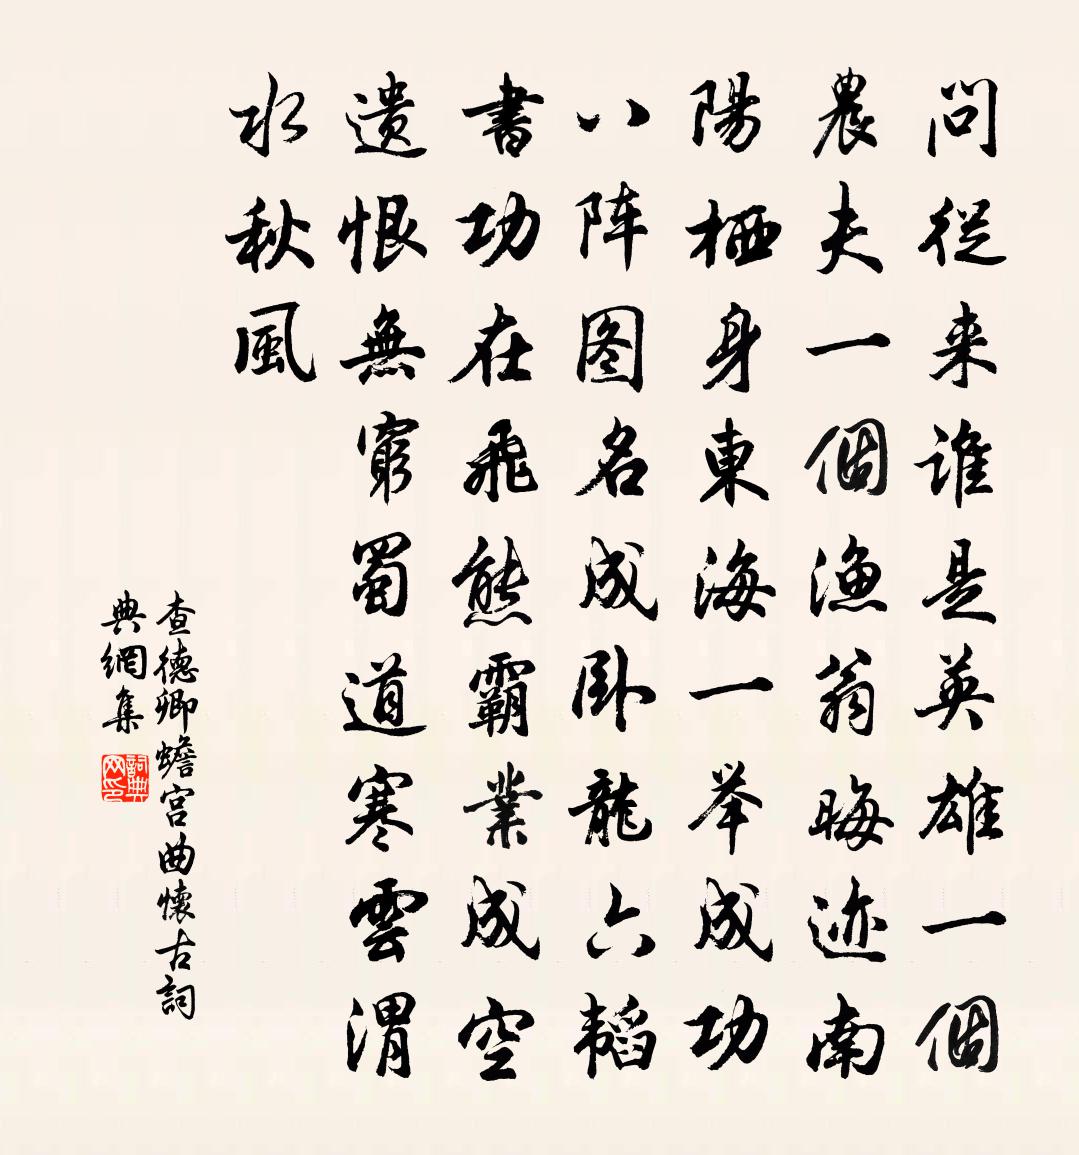 問従来谁是英雄一個
農夫一個漁翁晦迹南
陽栖身東海一举成功
八阵图名成卧龍六韬
書功在飛熊霸業成空
遗恨無窮蜀道寒雲渭
水秋風
查德卿蟾宫曲懷古詞
典網集
詞典网印